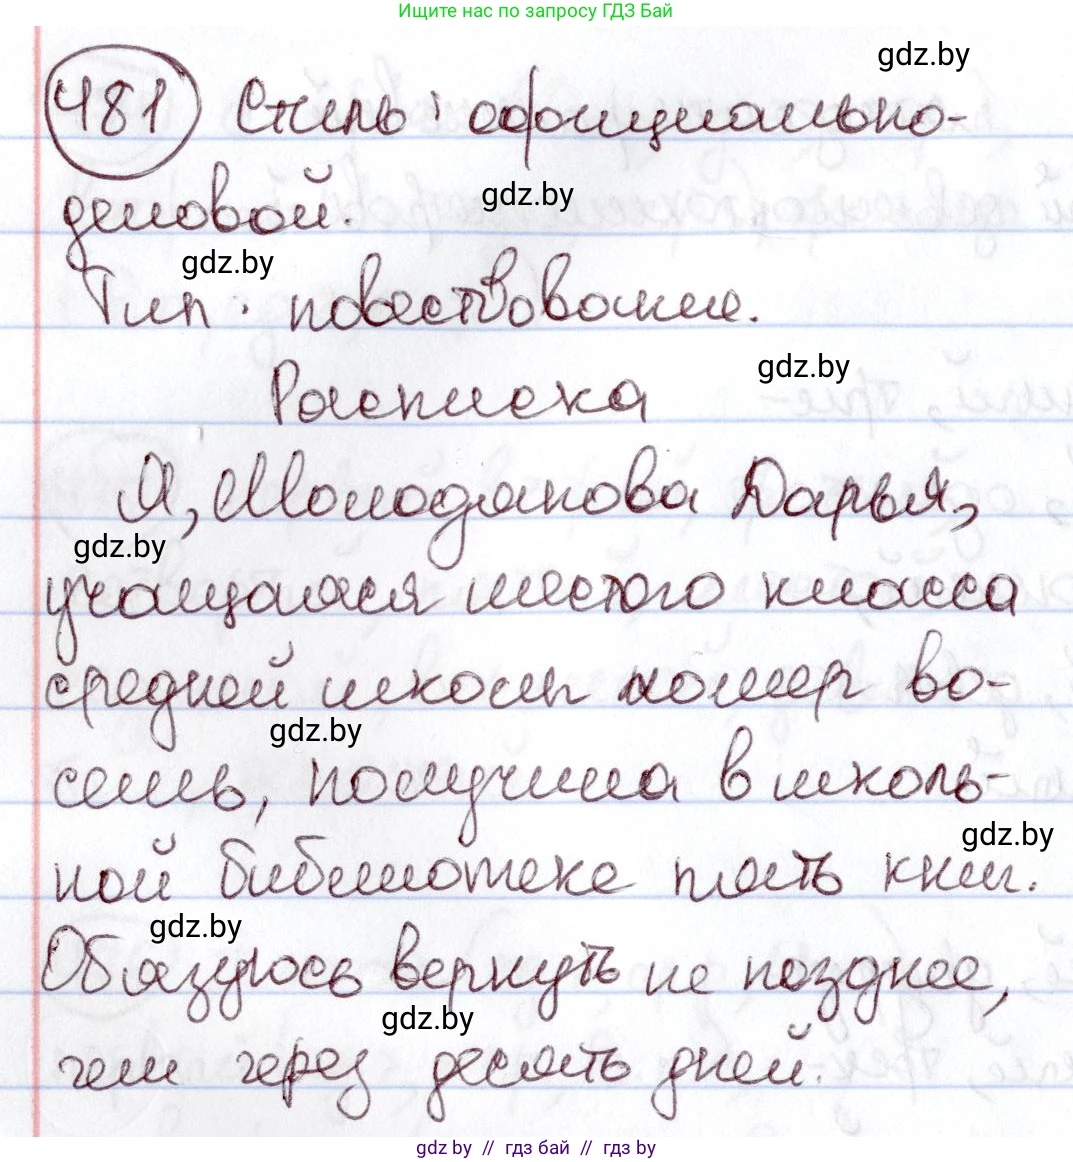 Ищите нас по запросу ГДЗ Бай
gdz.by
481 Стиль: официально-
gdz.by
деловой.
gdz.by
Тип: повествование.
gdz.by
Расписка
Я, Молодякова Дарья,
gdz.by
учащаяся шестого класса
средней школы номер во-
gdz.by
семь, получила в школь-
gdz.by
ной библиотеке пять книг.
gdz.by
Обязуюсь вернуть не позднее,
gdz.by
чем через десять дней.
gdz by // гдз бай // гдз by